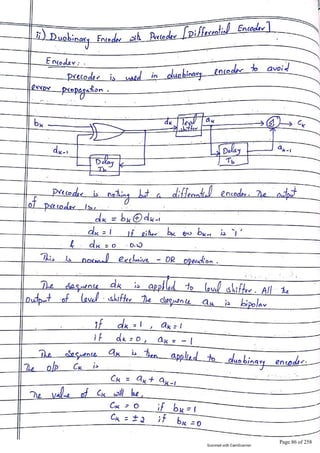 ii) Duobinary Encoder with Precoder [Differential Encoder]
Encoder:
precoder is used in duobinary encoder to avoid
error propagation.
bk
dk
level
shifter
ak
Σ
ck
dk-1
Delay
Tb
Delay
Tb
ak-1
Precoder is nothing but a differential encoder. The output
of precoder is,
dk = bk ⊕ dk-1
dk = 1 if either bk or bk-1 is '1'
& dk = 0 o.w
This is normal exclusive - OR operation.
The sequence dk is applied to level shifter. All the
Output of level shifter the sequence ak is bipolar
If dk = 1, ak = 1
If dk = 0, ak = -1
The sequence ak is then applied to duobinary encoder.
The o/p Ck is
Ck = ak + ak-1
The value of Ck will be,
Ck = 0 if bk = 1
Ck = ±2 if bk = 0
Scanned with CamScanner
Page 86 of 258